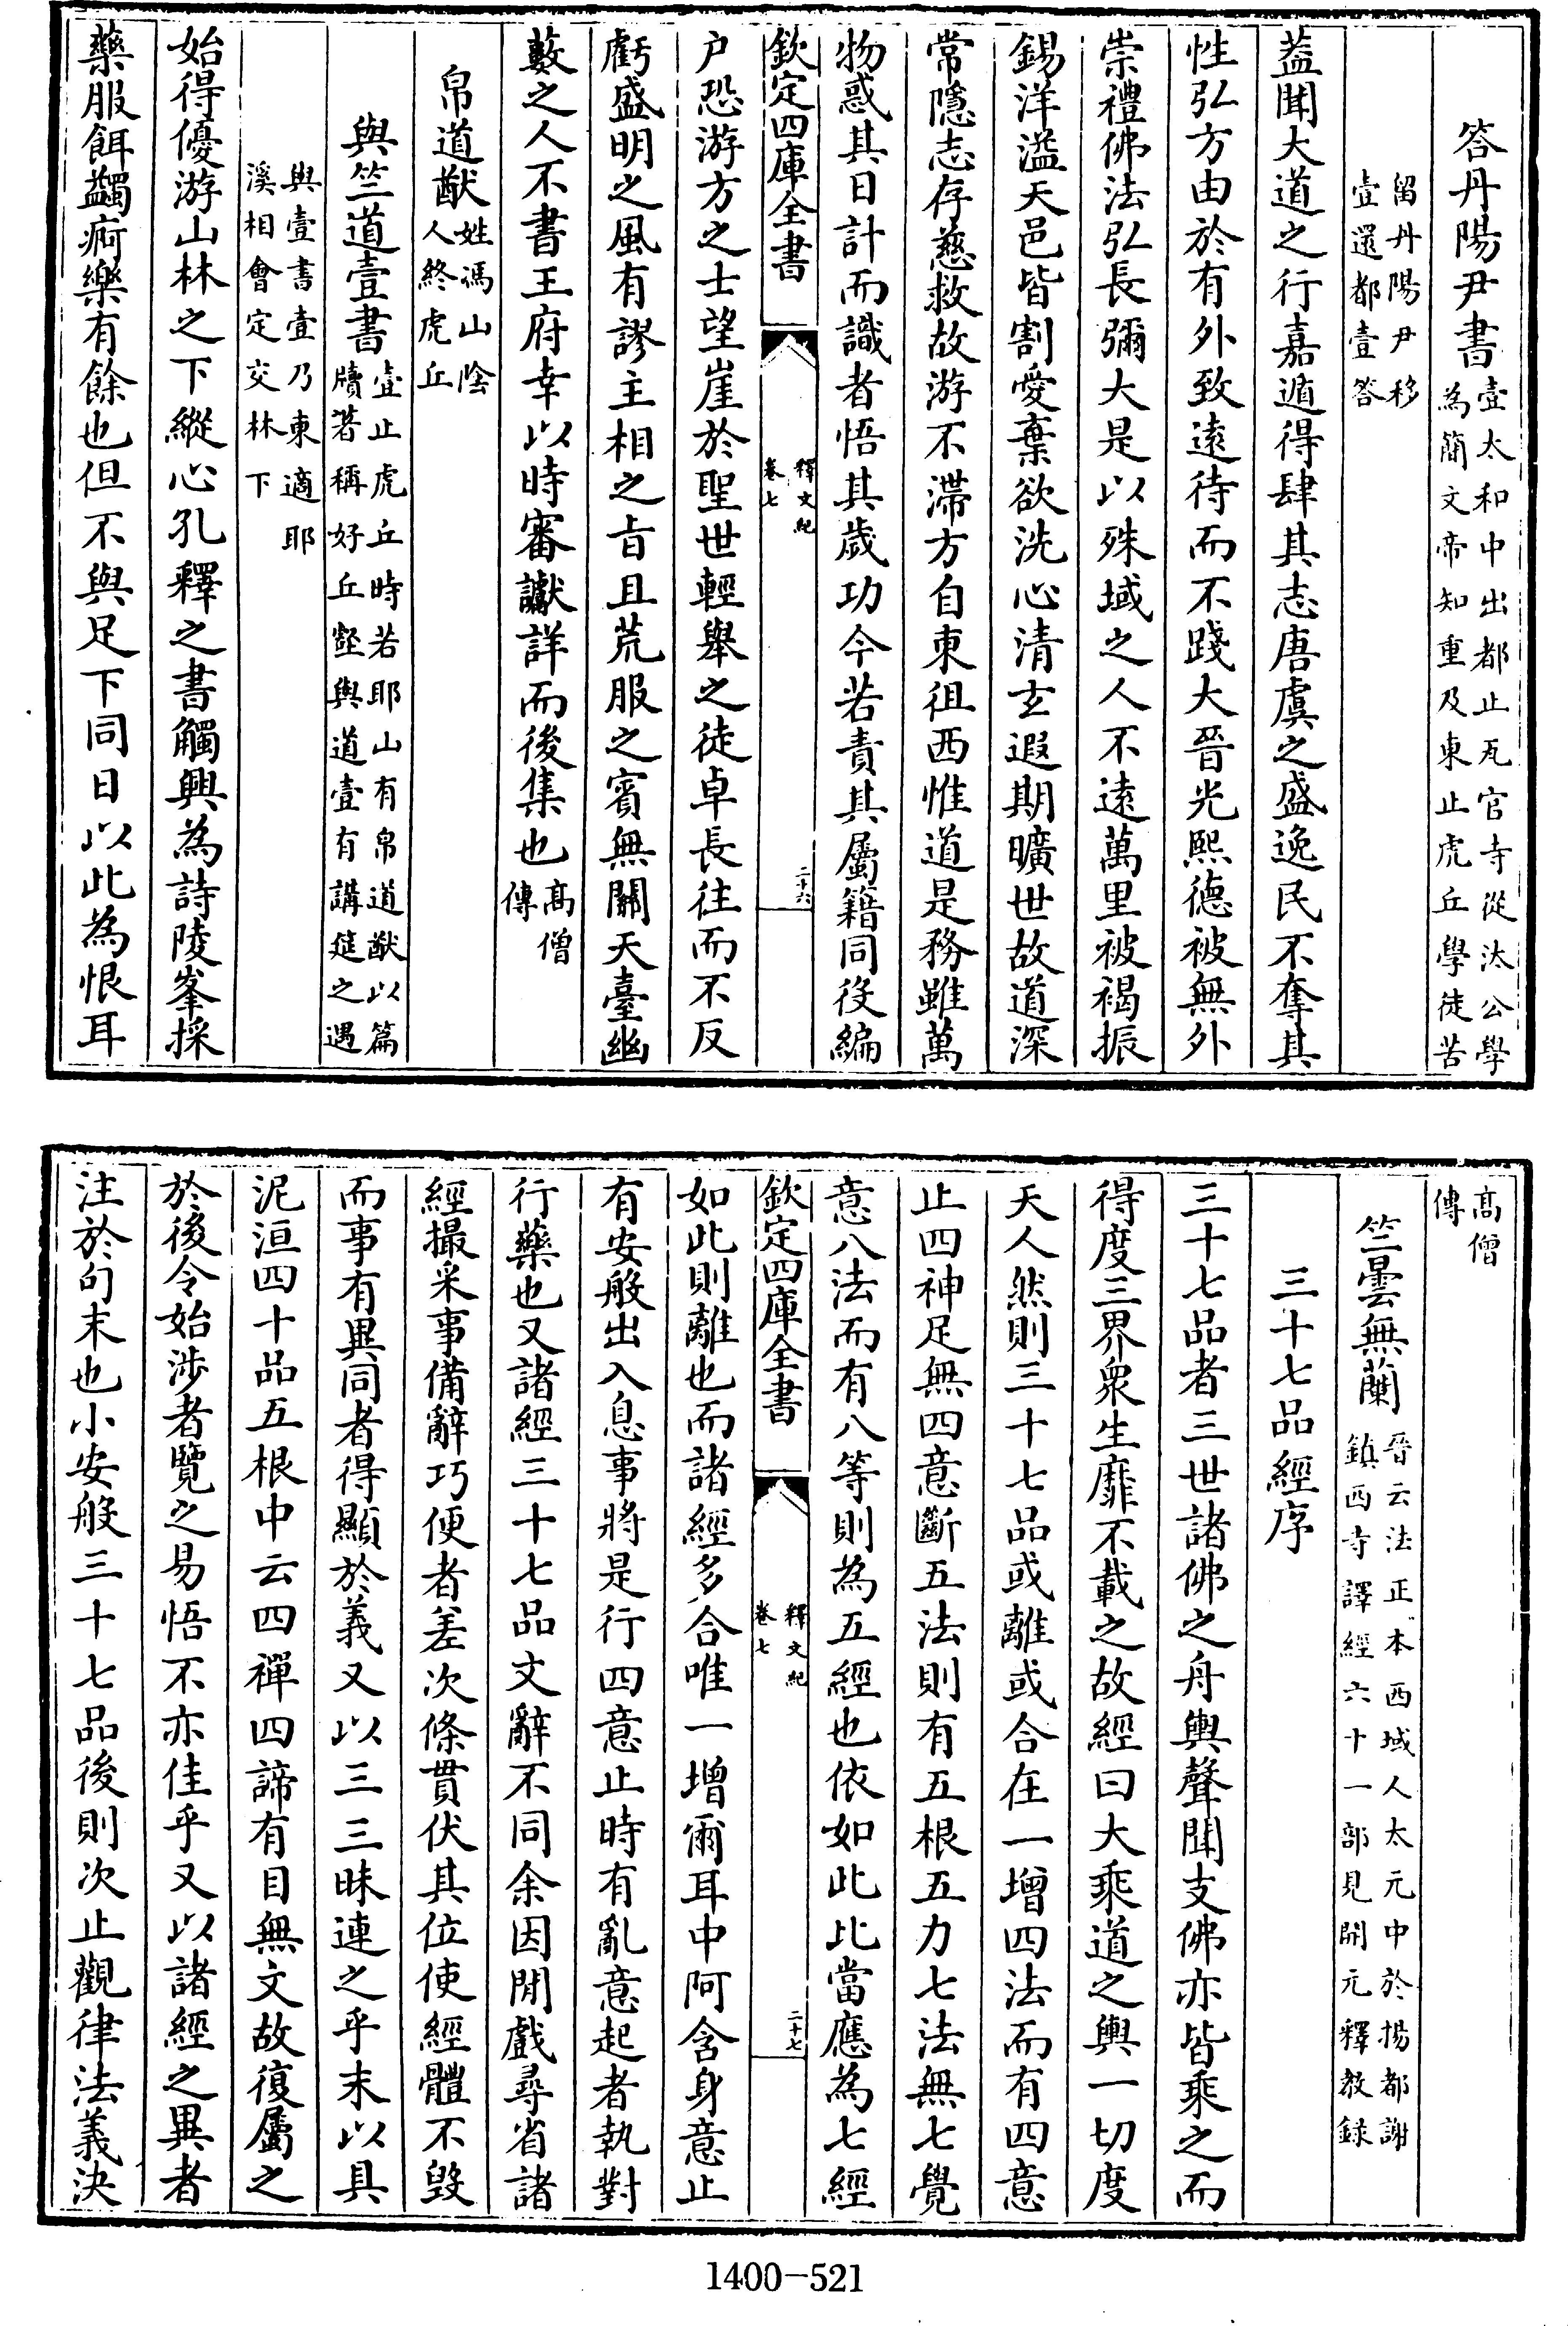 答丹陽尹書壹太和中出都止瓦官寺從汰公學
為簡文帝知重及東止虎丘學徒苦
留丹陽尹移
壹還都壹答
葢聞大道之行嘉遁得肆其志唐虞之盛逸民不奪其
性弘方由於有外致遠待而不踐大晉光熙德被無外
崇禮佛法弘長彌大是以殊域之人不遠萬里被褐振
錫洋溢天邑皆割愛棄欲洗心清玄遐期曠世故道深
常隱志存慈救故游不滯方自東徂西惟道是務雖萬
物惑其日計而識者悟其歲功今若責其屬籍同役編
欽定四庫全書
釋文紀
卷七
二十六
户恐游方之士望崖於聖世輕舉之徒卓長往而不反
虧盛明之風有謬主相之㫖且荒服之賓無關天臺幽
藪之人不書王府幸以時審讞詳而後集也高僧
傳
帛道猷姓馮山陰
人終虎丘
與竺道壹書壹止虎丘時若耶山有帛道猷以篇
牘著稱好丘壑與道壹有講筵之遇
與壹書壹乃東適耶
溪相會定交林下
始得優游山林之下縱心孔釋之書觸興為詩陵峯採
藥服餌蠲痾樂有餘也但不與足下同日以此為恨耳
高僧
傳
竺曇無蘭晉云法正本西域人太元中於揚都謝
鎮西寺譯經六十一部見開元釋教録
三十七品經序
三十七品者三世諸佛之舟輿聲聞支佛亦皆乘之而
得度三界衆生靡不載之故經曰大乘道之輿一切度
天人然則三十七品或離或合在一增四法而有四意
止四神足無四意斷五法則有五根五力七法無七覺
意八法而有八等則為五經也依如此比當應為七經
欽定四庫全書
釋文紀
卷七
二十七
如此則離也而諸經多合唯一增爾耳中阿含身意止
有安般出入息事將是行四意止時有亂意起者執對
行藥也又諸經三十七品文辭不同余因閒戲尋省諸
經撮采事備辭巧便者差次條貫伏其位使經體不毀
而事有異同者得顯於義又以三三昧連之乎末以具
泥洹四十品五根中云四禪四諦有目無文故復屬之
於後令始涉者覽之易悟不亦佳乎又以諸經之異者
注於句末也小安般三十七品後則次止觀律法義決
1400-521